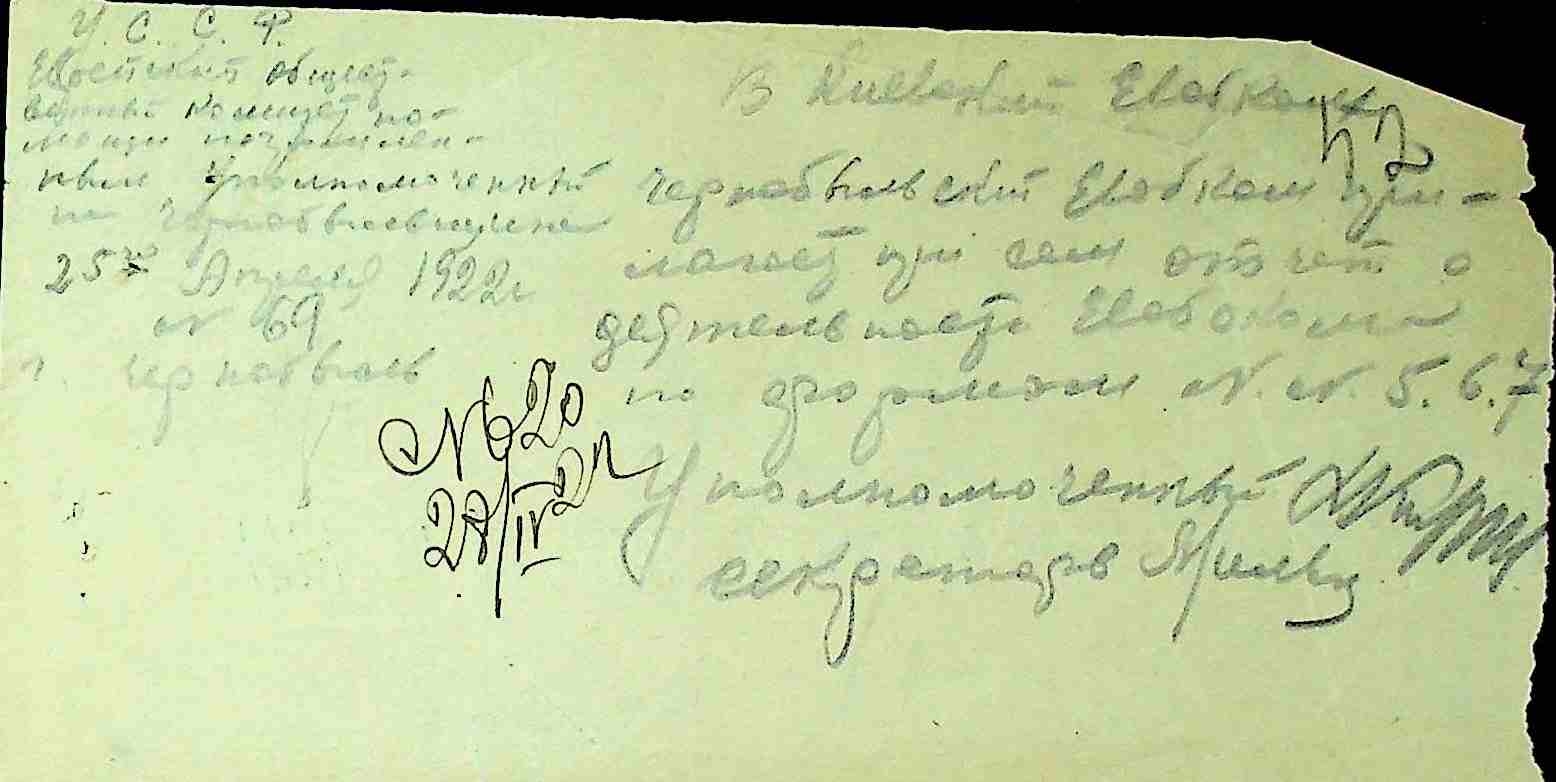 У. С. С. Р.
Еврейский общест-
венный комитет по-
мощи погромлен-
ным Уполномоченный
по Чернобыльщине
25го Апреля 1922 г
N 69
г. Чернобыль
В Киевский Евобком
47
Чернобыльский Евобком при-
лагает при сем отчет о
деятельности Евобкома
по формам N. N. 5. 6. 7
Уполномоченный
секретарь
N 620
28/IV 22